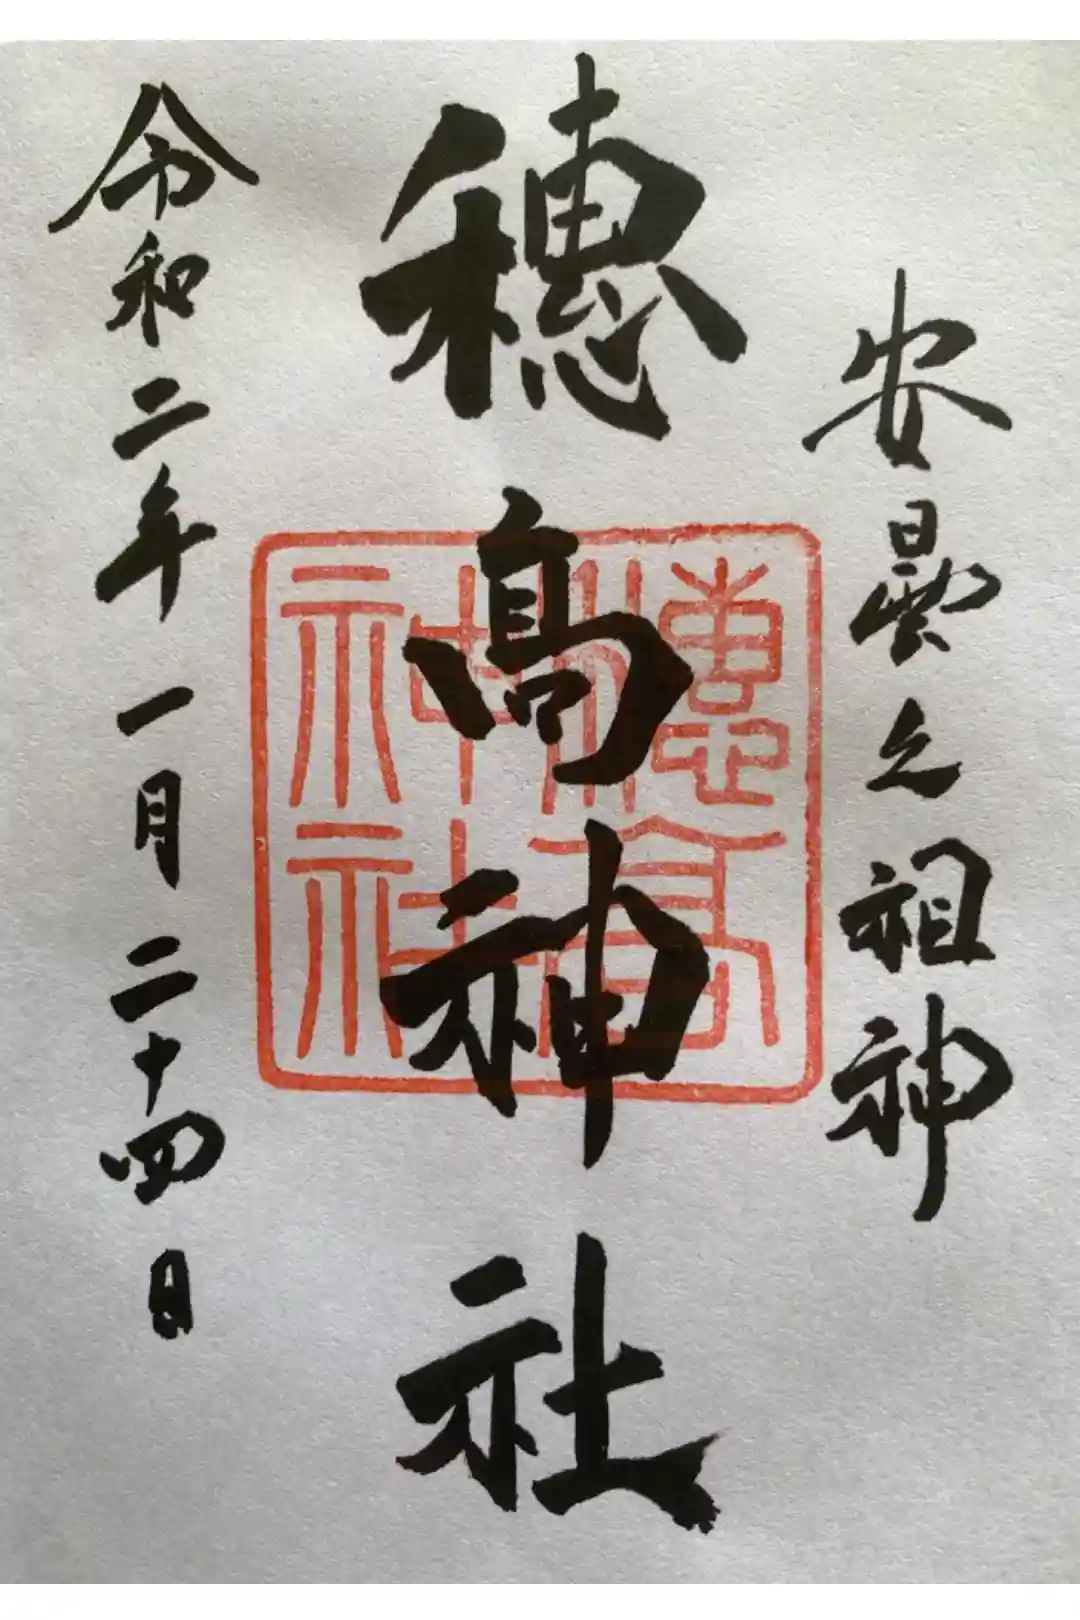 安曇之祖神
穂高神社
穂高
神社
令和二年一月二十四日